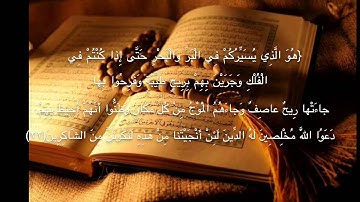 {هُوَ الَّذِي يُسَيِّرُكُمْ فِي الْبَرِّ وَالْبَحْرِ حَتَّى إِذَا كُنْتُمْ فِي
الْفُلْكِ وَجَرَيْنَ بِهِمْ بِرِيحٍ طَيِّبَةٍ وَفَرِحُوا بِهَا
جَاءَتْهَا رِيحٌ عَاصِفٌ وَجَاءَهُمُ الْمَوْجُ مِنْ كُلِّ مَكَانٍ وَظَنُّوا أَنَّهُمْ أُحِيطَ بِهِمْ
دَعَوُا اللَّهَ مُخْلِصِينَ لَهُ الدِّينَ لَئِنْ أَنْجَيْتَنَا مِنْ هَذِهِ لَنَكُونَنَّ مِنَ الشَّاكِرِينَ(٢٢)}